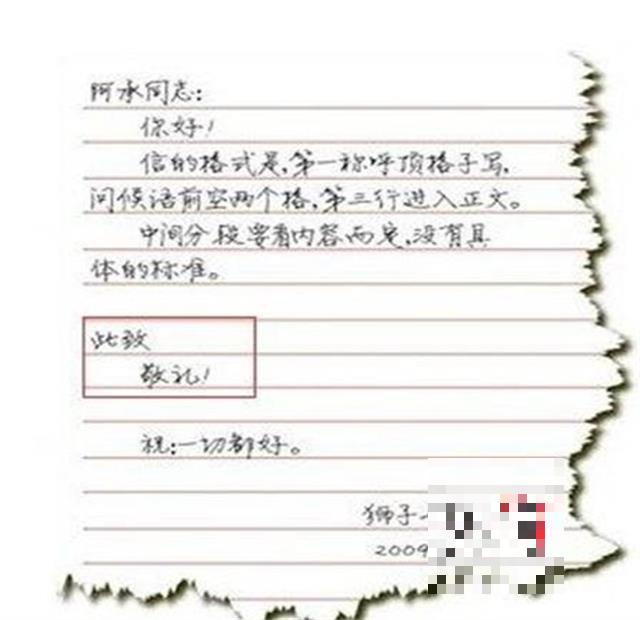 阿承同志：
你好！
信的格式是，第一称呼顶格子写，
问候语前空两个格，第三行进入正文。
中间分段要看内容而定，没有具
体的标准。
此致
敬礼！
祝：一切都好。
狮子
2009